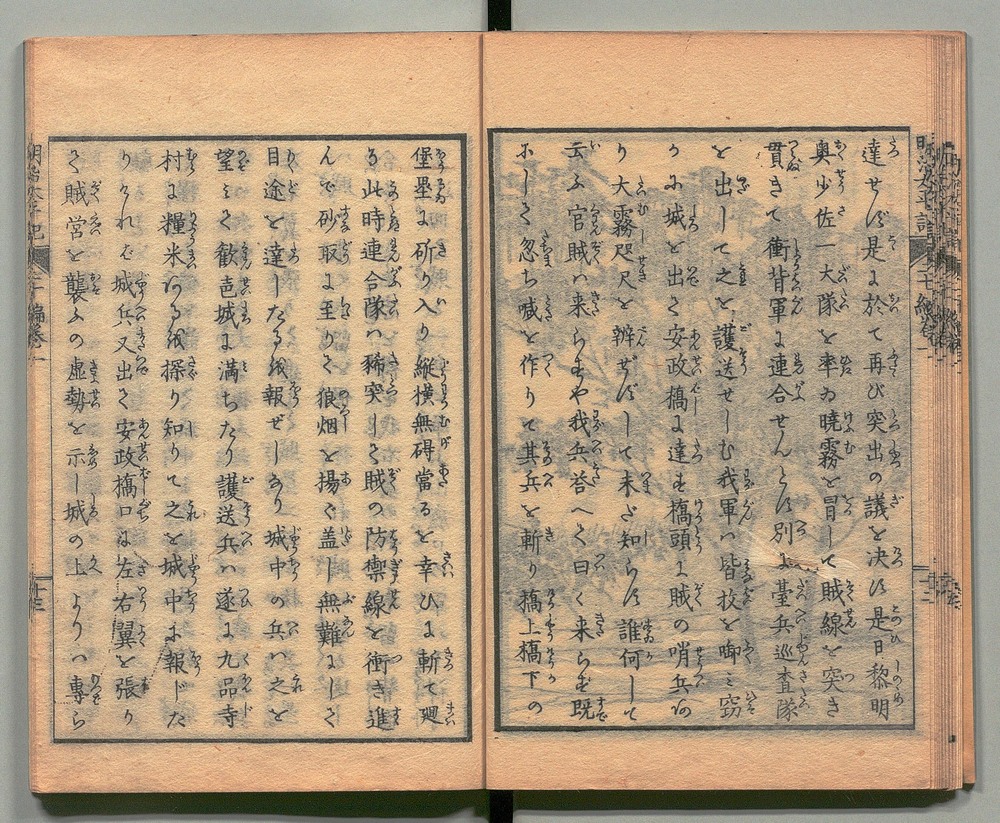 達せず是に於て再び突出の議を決す是日黎明
奥少佐一大隊を率ゐ曉霧を冒して賊線を突き
貫きて衝背軍に連合せんとす別に臺兵巡査隊
を出して之を護送せしむ我軍ハ皆枚を啣ミ窃
に城を出て安政橋に達す橋頭に賊の哨兵あ
り大霧咫尺を辨ぜずして未だ知らず誰何して
云ふ官賊ハ来らずや我兵荅へて曰く来らず既
にして忽ち喊を作りて其兵を斬り橋上橋下の
堡壘に斫り入り縦横無碍當るを幸ひに斬て廻
る此時連合隊ハ豨突して賊の防禦線を衝き進
んで砂取に至りて狼烟を揚ぐ盖し無難にして
目途を達したるを報ぜしなり城中の兵ハ之を
望ミて歓邑城に満ちたり護送兵ハ遂に九品寺
村に糧米あるを探り知りて之を城中に報じた
りけれバ城兵又出て安政橋口に左右翼を張り
て賊営を襲ふの虚勢を示し城の上よりハ專ら
明治太平記
二十編卷一
十三